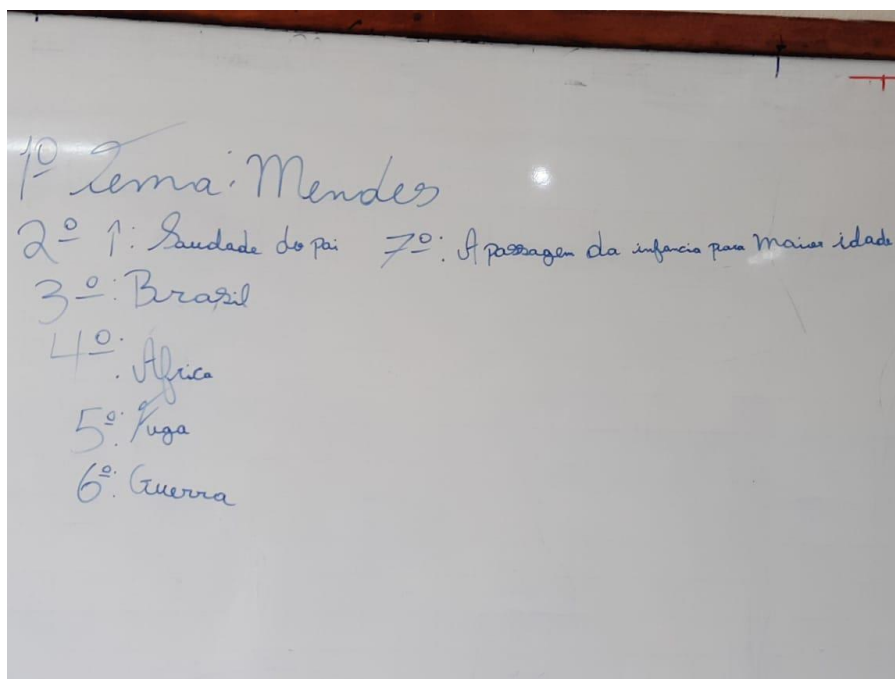 1º Tema: Mendes
2º ↑: Saudade do pai
7º: A passagem da infancia para Maior idade
3º: Brasil
4º: África
5º: Fuga
6º: Guerra